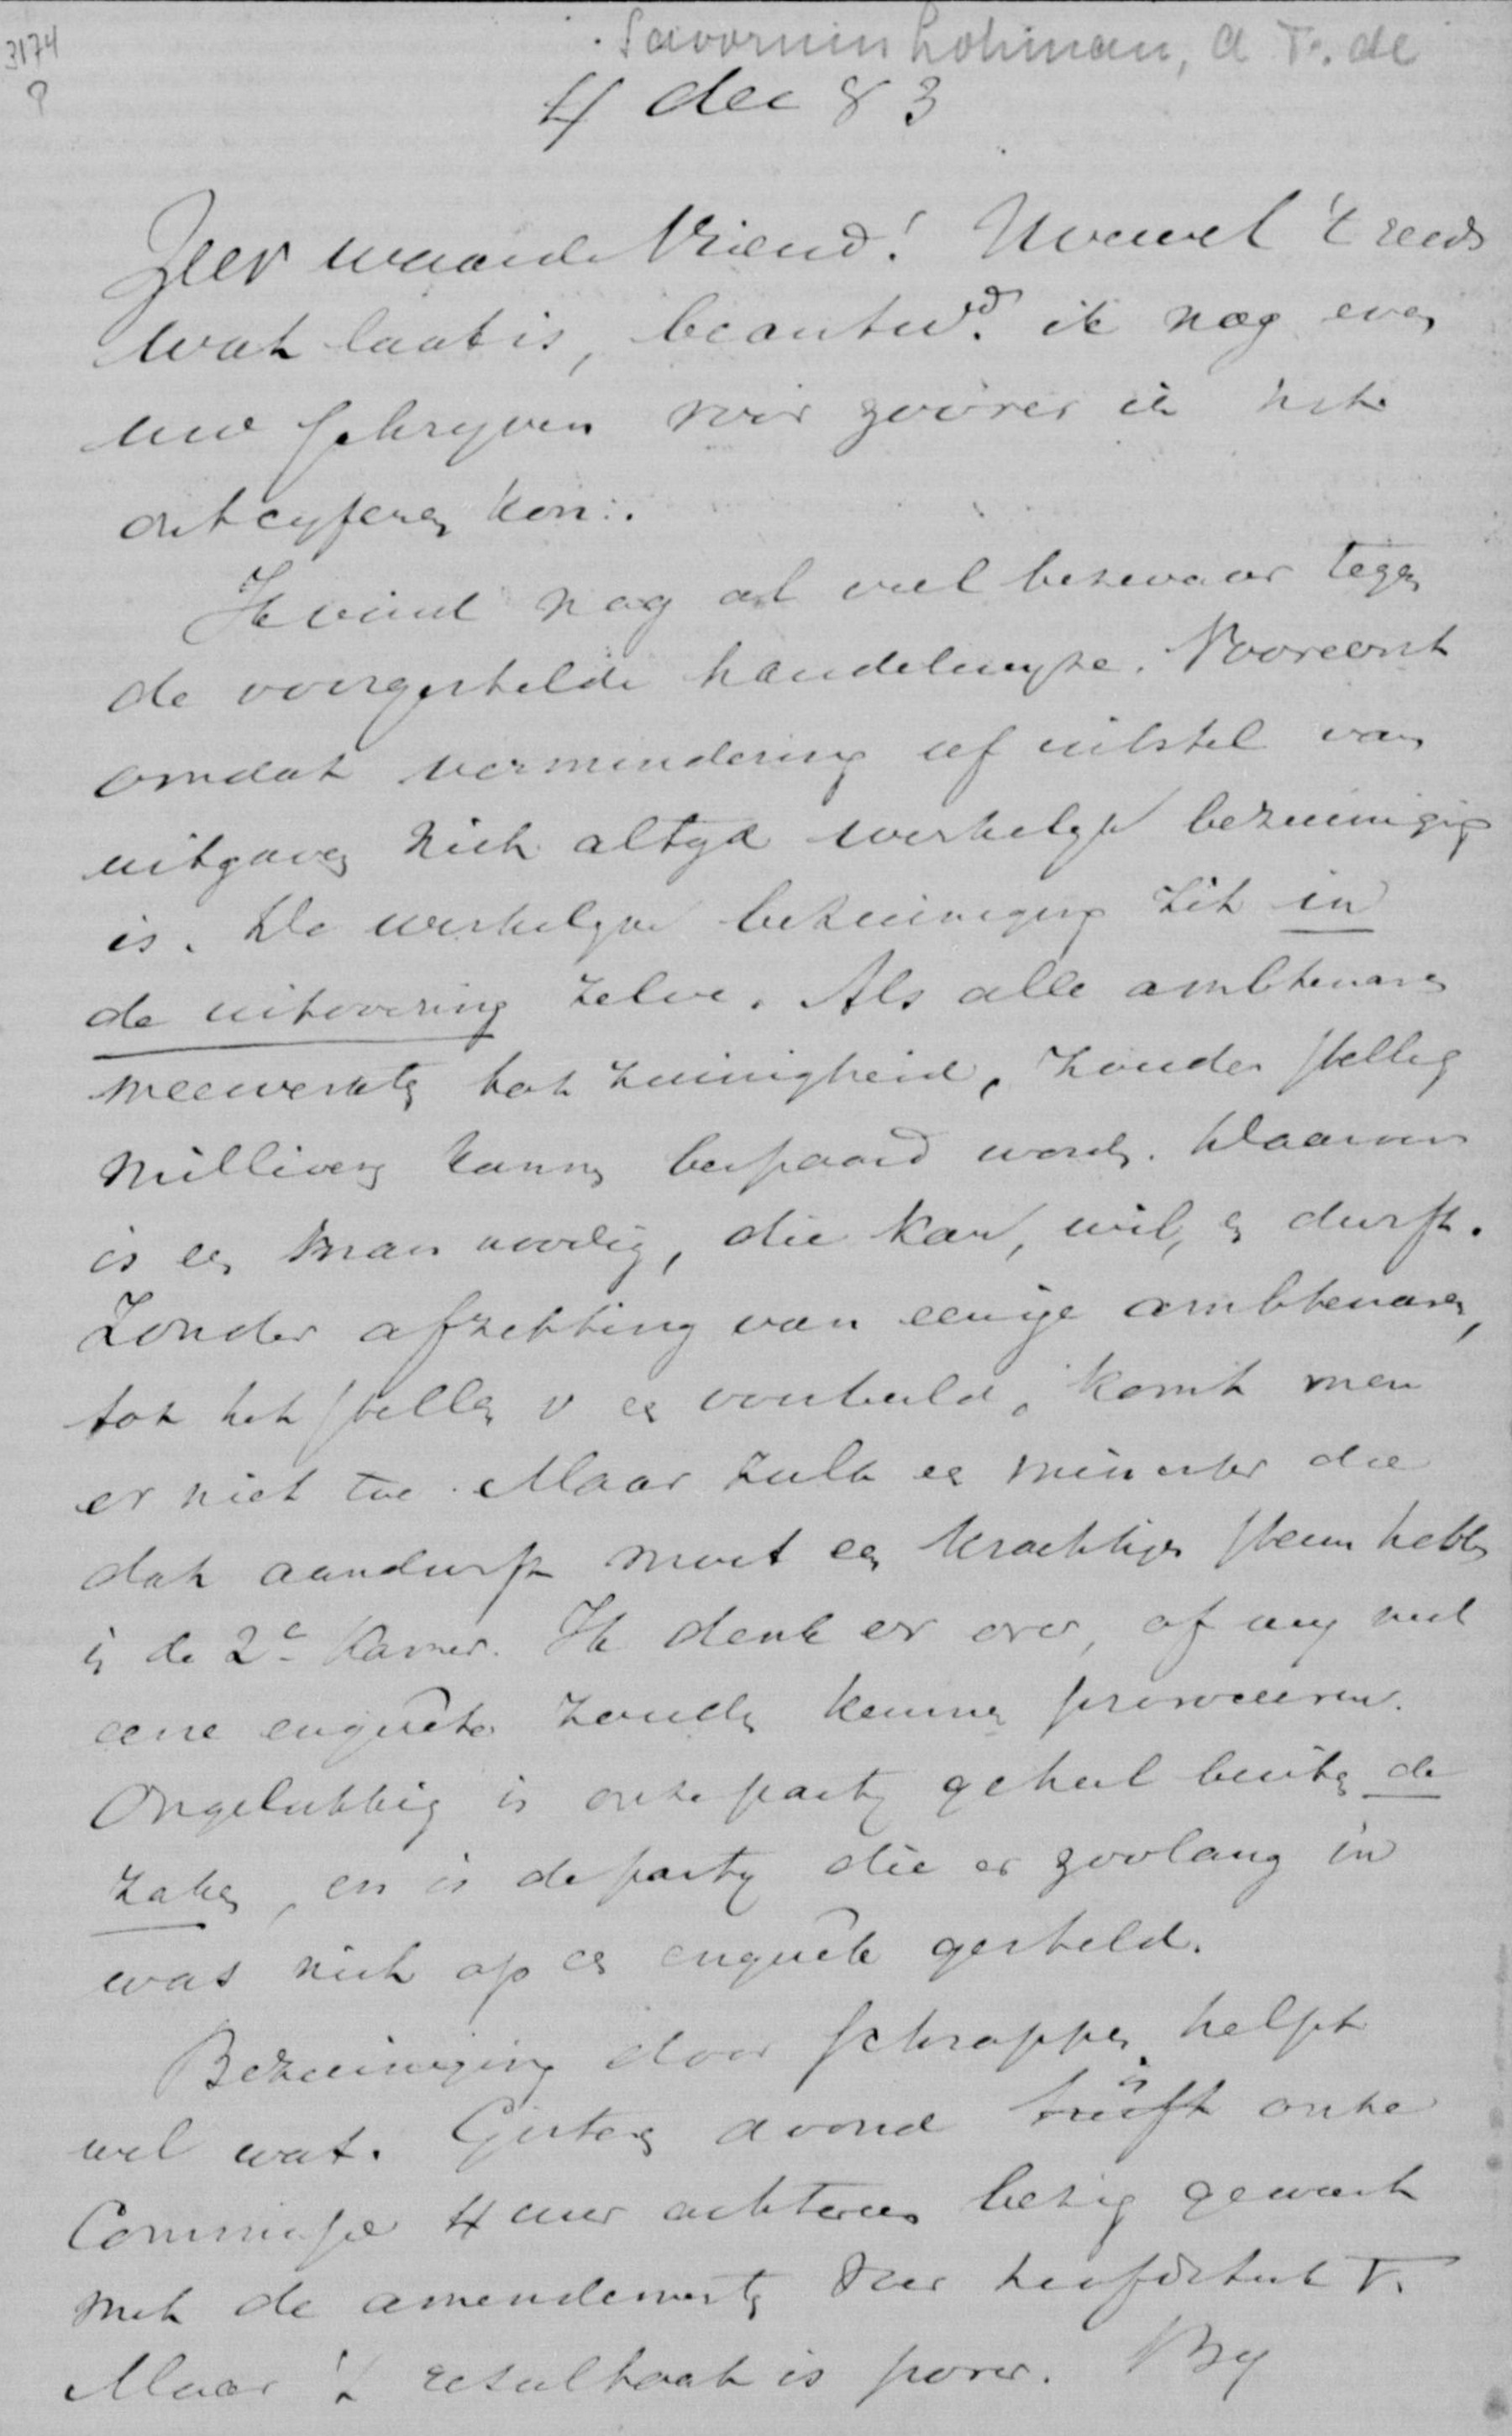 3174
?
Savornin Lohman, A. F. de
4 dec 83
Zeer waarde Vriend! Hoewel 't reeds
wat laat is, beantwd. ik nog even
uw schryven voor zoover ik het
ontcyferen kon.
Ik vind nog al veel bezwaar tegen
de voorgestelde handelwyze. Vooreerst
omdat vermindering of uitstel van
uitgaven niet altyd werkelyk bezuiniging
is. De werkelyke bezuiniging zit in
de uitvoering zelve. Als alle ambtenaren
meewerkten tot zuinigheid, zouden stellig
millioenen kunnen bespaard worden. Daarvoor
is een man noodig, die kan, wil, en durft.
Zonder afzetting van eenige ambtenaren,
tot het stellen v een voorbeeld, komt men
er niet toe. Maar zulk een minister die
dat aandurft moet een krachtigen steun hebben
in de 2e Kamer. Ik denk er over, of wy niet
eene enquête zouden kunnen provoceeren.
Ongelukkig is onze party geheel buiten de
zaken, en is de party die er zoolang in
was niet op een enquête gesteld.
Bezuiniging door schrappen helpt
wel wat. Gisteren avond is onze
Commissie 4 uur achtereen bezig geweest
met de amendementen over hoofdstuk V.
Maar 't resultaat is pover. By